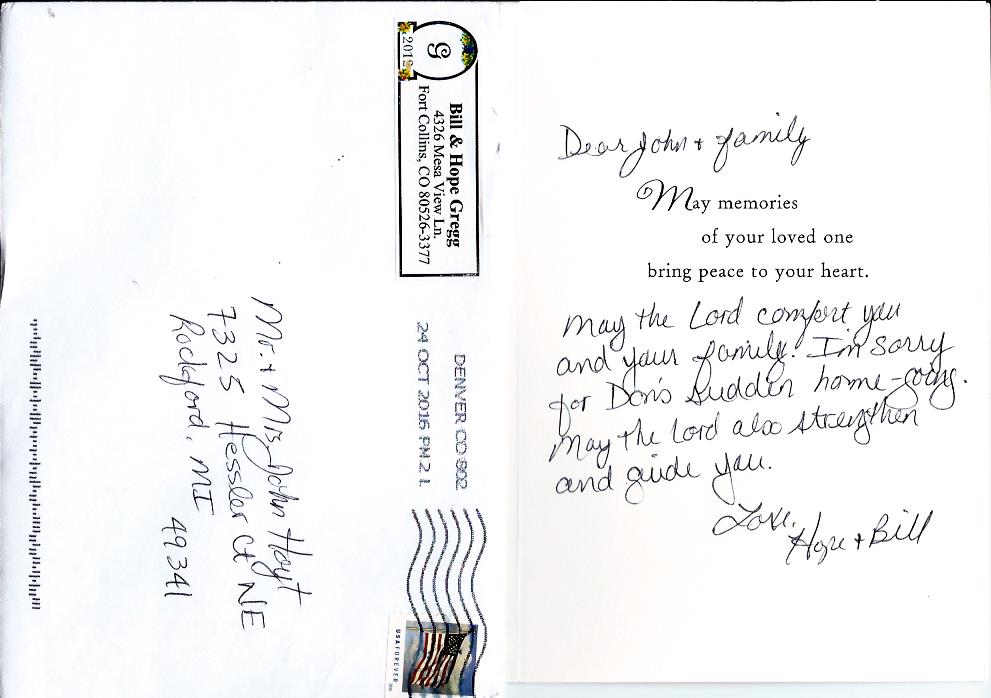 G
2012
Bill & Hope Gregg
4326 Mesa View Ln.
Fort Collins, CO 80526-3377
DENVER CO 802
24 OCT 2016 PM 2 L
USA FOREVER
Mr. + Mrs. John Hoyt
7325 Hessler Ct NE
Rockford, MI
49341
Dear John + family
May memories
of your loved one
bring peace to your heart.
May the Lord comfort you
and your family. I'm sorry
for Don's sudden home-going.
May the Lord also strengthen
and guide you.
Love,
Hope + Bill